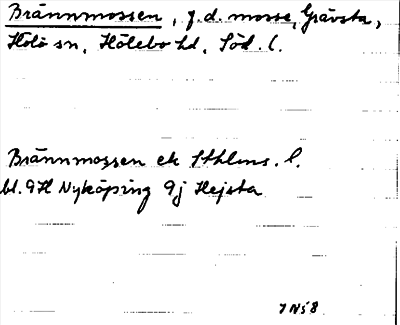 Brännmossen, f.d. mosse, Grävsta,
Hölö sn, Hölebo hd, Söd. l.
Brännmossen ek Sthlms. l.
bl. 9H Nyköping 9j Hejsta